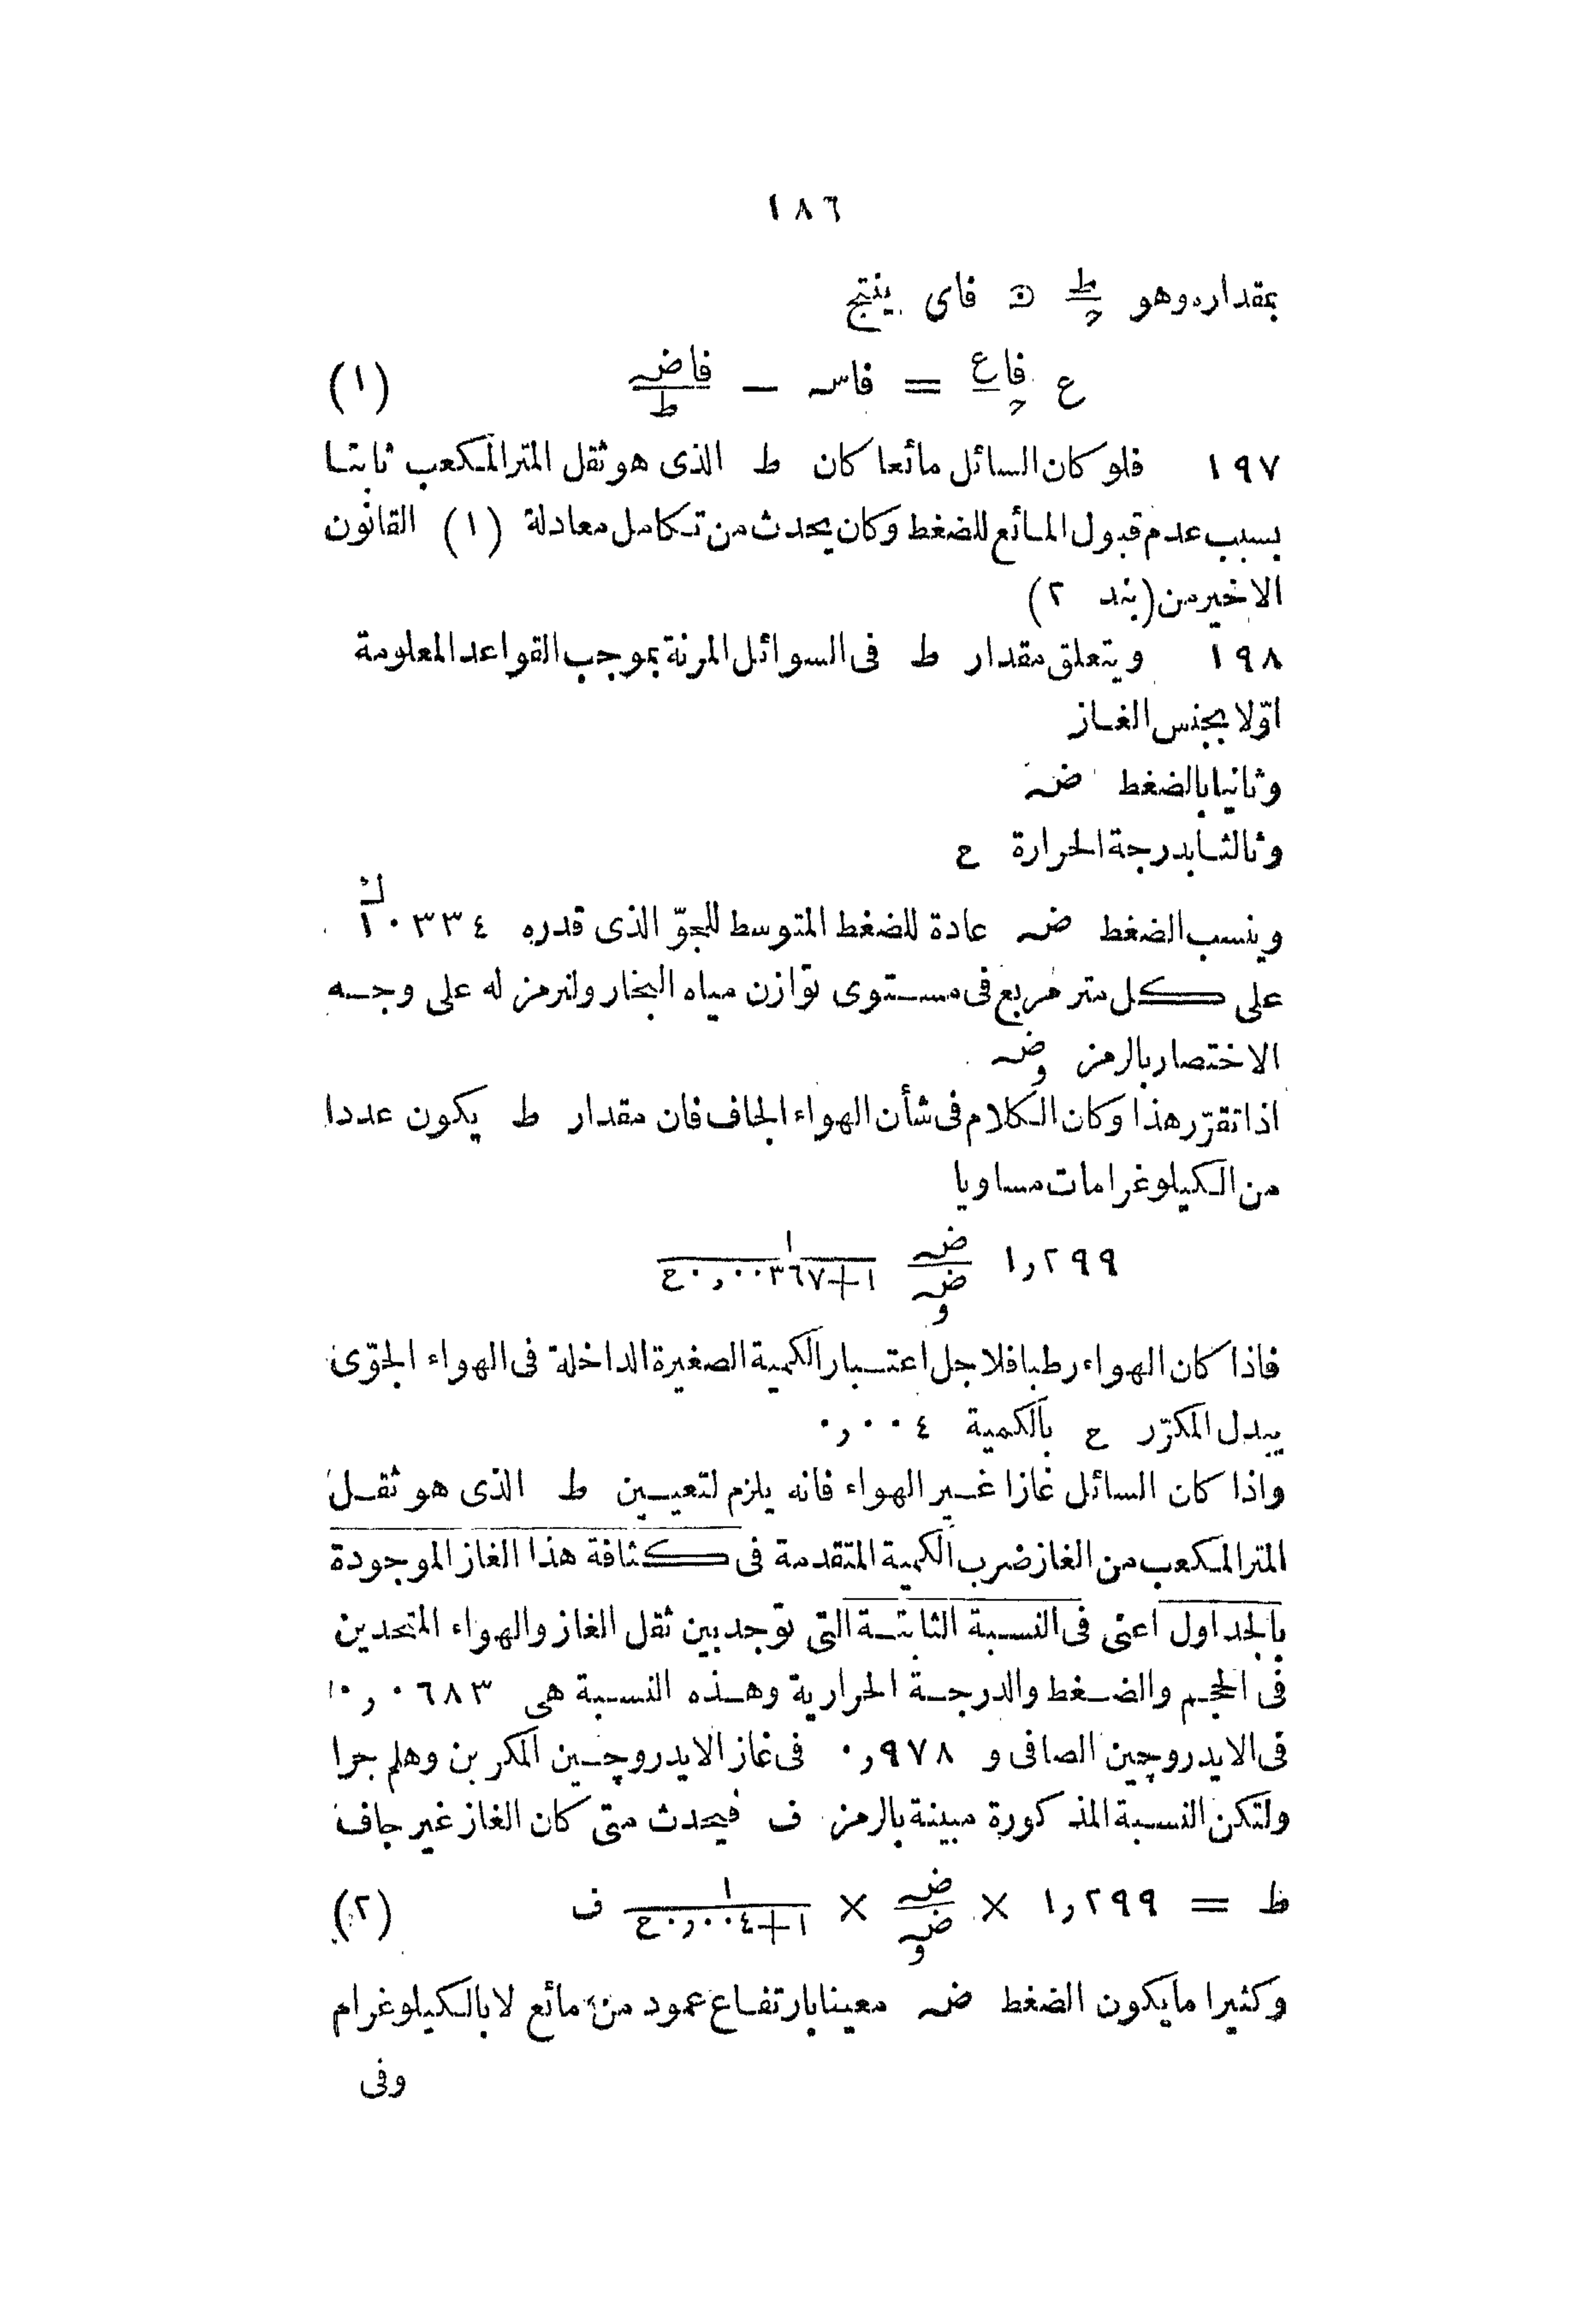 ١٨٦
بمقداره وهو ط/ح فاى ينتج
ع فاع/ح = فاسه − فاضه/ط (١)
١٩٧ فلو كان السائل مائعا كان ط الذى هو ثقل المتر المكعب ثابتا
بسبب عدم قبول المائع للضغط وكان يحدث من تكامل معادلة (١) القانون
الاخير من (بند ٢)
١٩٨ ويتعلق مقدار ط فى السوائل المرنة بموجب القواعد المعلومة
اوّلا بجنس الغاز
وثانيا بالضغط ضه
وثالثا بدرجة الحرارة ع
وينسب الضغط ضه عادة للضغط المتوسط للجوّ الذى قدره ١٠٣٣٤ ك
على كل متر مربع فى مستوى توازن مياه البخار ولنرمز له على وجه
الاختصار بالرمز ضه و
اذا تقرّر هذا وكان الكلام فى شأن الهواء الجاف فان مقدار ط يكون عددا
من الكيلوغرامات مساويا
١,٢٩٩ ضه/ضه و ١/(١+٠,٠٠٣٦٧ع)
فاذا كان الهواء رطبا فلاجل اعتبار الكمية الصغيرة الداخلة فى الهواء الجوّى
يبدل المكرّر ع بالكمية ٠,٠٠٤
واذا كان السائل غازا غير الهواء فانه يلزم لتعيين ط الذى هو ثقل
المتر المكعب من الغاز ضرب الكمية المتقدمة فى كثافة هذا الغاز الموجودة
بالجداول اعنى فى النسبة الثابتة التى توجد بين ثقل الغاز والهواء المتحدين
فى الحجم والضغط والدرجة الحرارية وهذه النسبة هى ٠,٠٦٨٣
فى الايدروچين الصافى و ٠,٩٧٨ فى غاز الايدروچين المكربن وهلم جرا
ولتكن النسبة المذكورة مبينة بالرمز ف فيحدث متى كان الغاز غير جاف
ط = ١,٢٩٩ × ضه/ضه و × ١/(١+٠,٠٠٤ع) ف (٢)
وكثيرا ما يكون الضغط ضه معينا بارتفاع عمود من مائع لا بالكيلوغرام
وفى